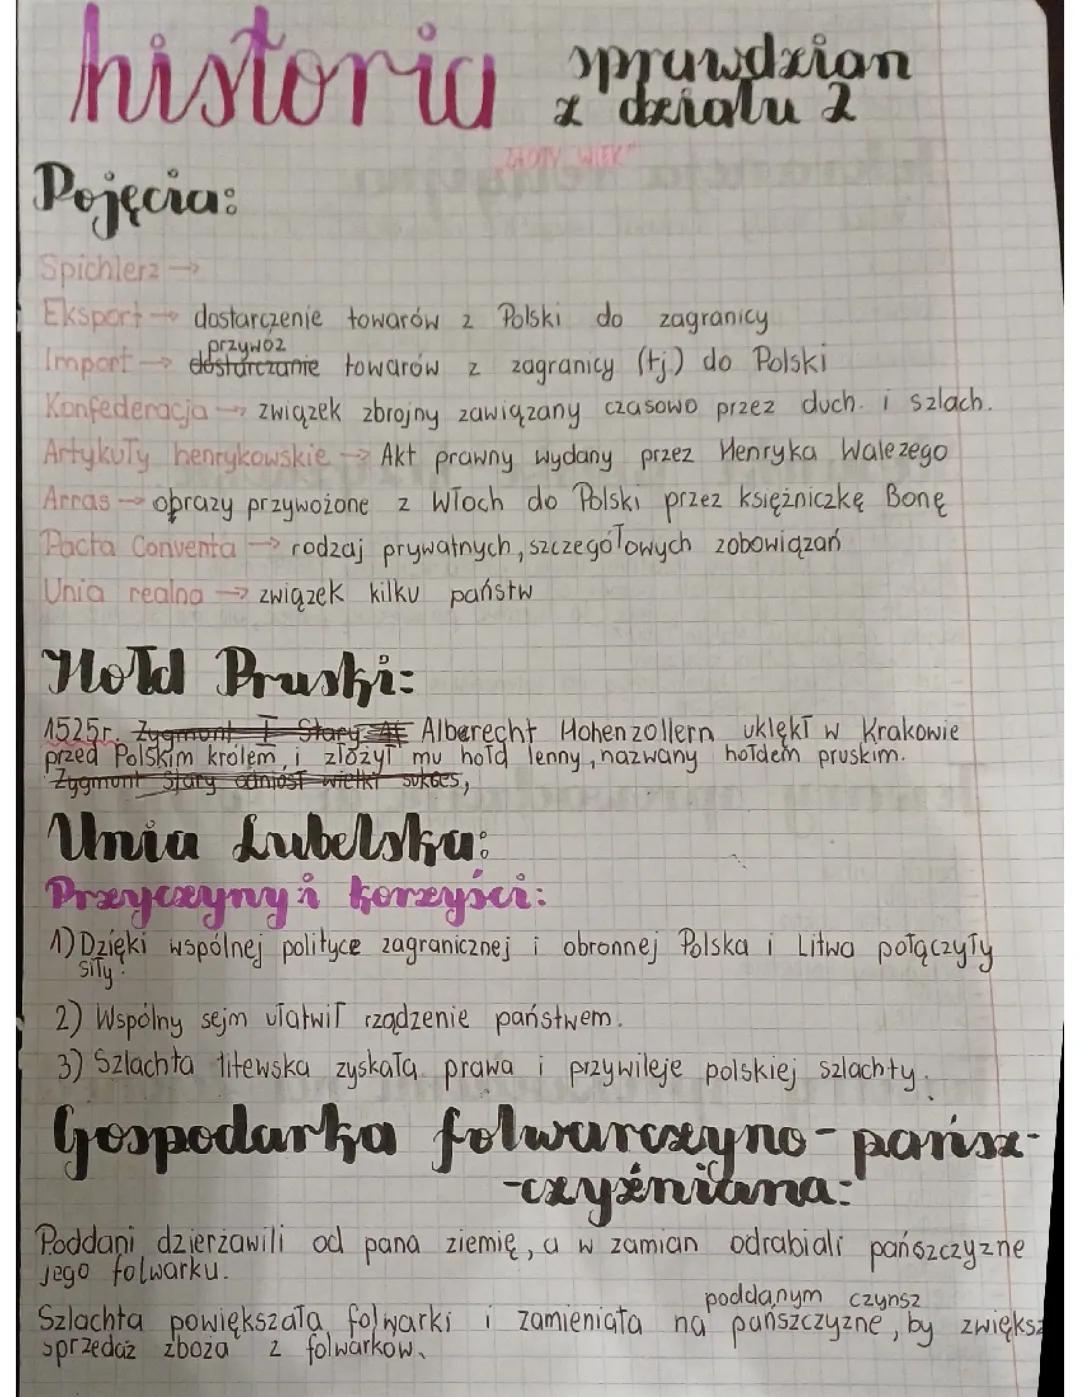 historia sprawdzian
z działu 2
"ZŁOTY WIEK"
Pojęcia:
Spichlerz →
Eksport → dostarczenie towarów z Polski do zagranicy
przywóz
Import → dostarczanie towarów z zagranicy (tj.) do Polski
Konfederacja → związek zbrojny zawiązany czasowo przez duch. i szlach.
Artykuły henrykowskie → Akt prawny wydany przez Henryka Walezego
Arras → obrazy przywożone z Włoch do Polski przez księżniczkę Bonę
Pacta Conventa → rodzaj prywatnych, szczegółowych zobowiązań
Unia realna → związek kilku państw
Hołd Pruski:
1525r. Zygmont I Stary Alberecht Hohenzollern uklękł w Krakowie
przed Polskim królem, i złożył mu hołd lenny, nazwany hołdem pruskim.
Zygmont Stary odniosł wielki sukces,
Unia Lubelska:
Przyczyny i korzyści:
1) Dzięki wspólnej polityce zagranicznej i obronnej Polska i Litwa połączyły
siły.
2) Wspólny sejm ułatwił rządzenie państwem.
3) Szlachta litewska zyskała prawa i przywileje polskiej szlachty.
Gospodarka folwarczyno-pańsz-
-czyźniana:
Poddani dzierżawili od pana ziemię, a w zamian odrabiali pańszczyzne
jego folwarku.
poddanym czynsz
Szlachta powiększała folwarki i zamieniała na pańszczyzne, by zwiększ
sprzedaż zboża z folwarkow.